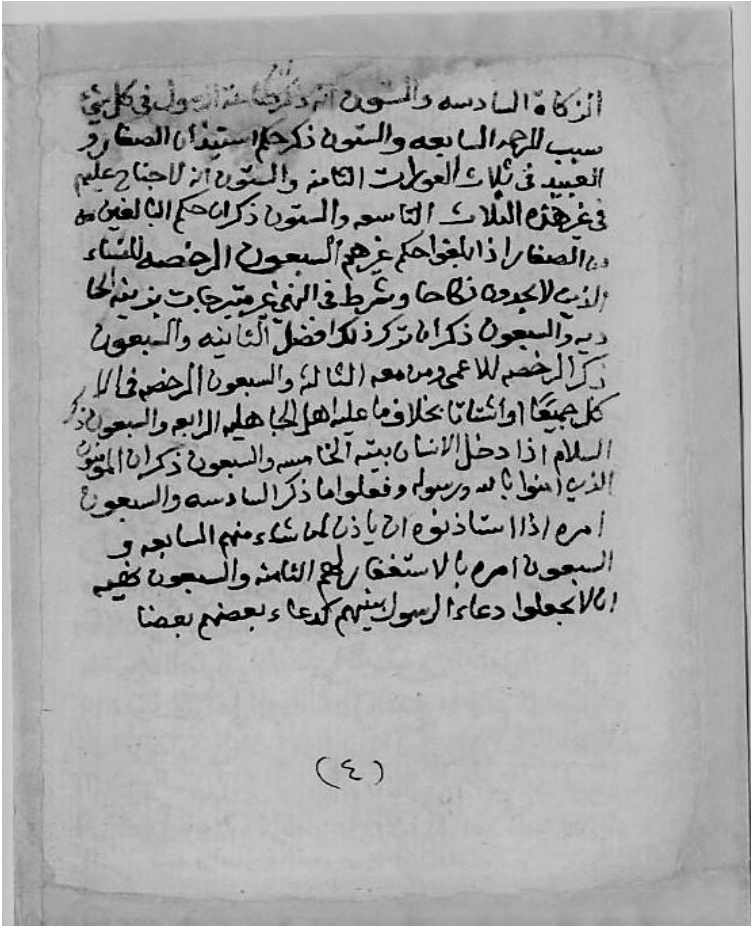 الزكاة السادسه والستون انه ذكر طاعة الرسول في كل شيء
سبب للرحمه السابعه والستون ذكر حكم استيذان الصغار و
العبيد في ثلاث العورات الثامنه والستون انه لا جناح عليهم
في غير هذه الثلاث التاسعه والستون ذكر ان حكم البالغين من
من الصغار اذا بلغوا حكم غيرهم السبعون الرخصه للنساء
الذين لا يجدون نكاحا وشرط في الهني غير متبرجات بزينه الحا
ديه والسبعون ذكر ان ترك ذلك افضل الثانيه والسبعون
ذكر الرخصه للاعمى ومن معه الثالثه والسبعون الرخصه في الا
كل جميعا او اشتاتا بخلاف ما عليه اهل الجاهليه الرابعه والسبعون ذكر
السلام اذا دخل الانسان بيته الخامسه والسبعون ذكر ان المؤمنون
الذين امنوا بالله ورسوله وفعلوا ما ذكر السادسه والسبعون
امره اذا استاذنوه ان ياذن لمن شاء منهم السابعه و
السبعون امره بالاستغفار لهم الثامنه والسبعون نهيه
ان لا يجعلوا دعاء الرسول بينهم كدعاء بعضهم بعضا
(٤)